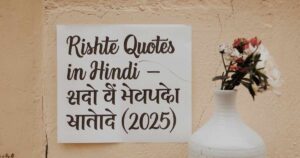 Rishte Quotes
in Hindi –
वें
सातोदे (2025)